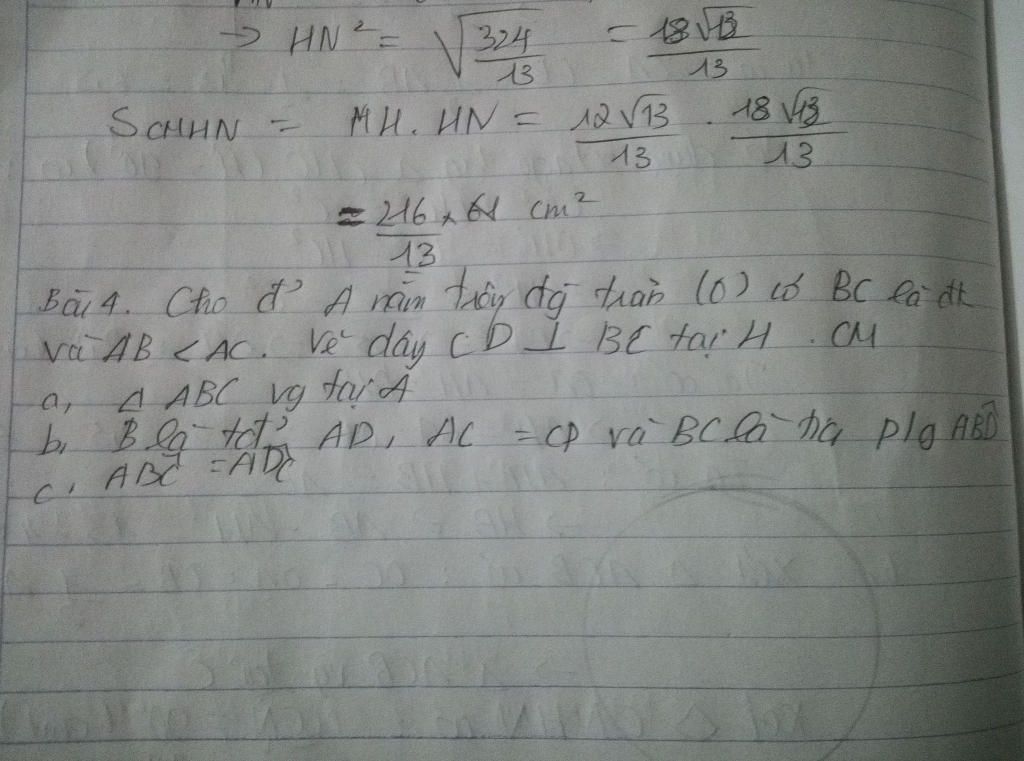 → HN² = √(324/13) = 18√13/13
SCMHN = MH. HN = 12√13/13 . 18√13/13
= 216/13 cm²
Bài 4. Cho đ' A nằm trên đg tròn (O) có BC là đk
và AB < AC. Vẽ dây CD ⊥ BC tại H . CM
a, Δ ABC vg tại A
b, B là tđ' AD, AC = CD và BC là tia p/g ABD̂
c, ABĈ = ADĈ